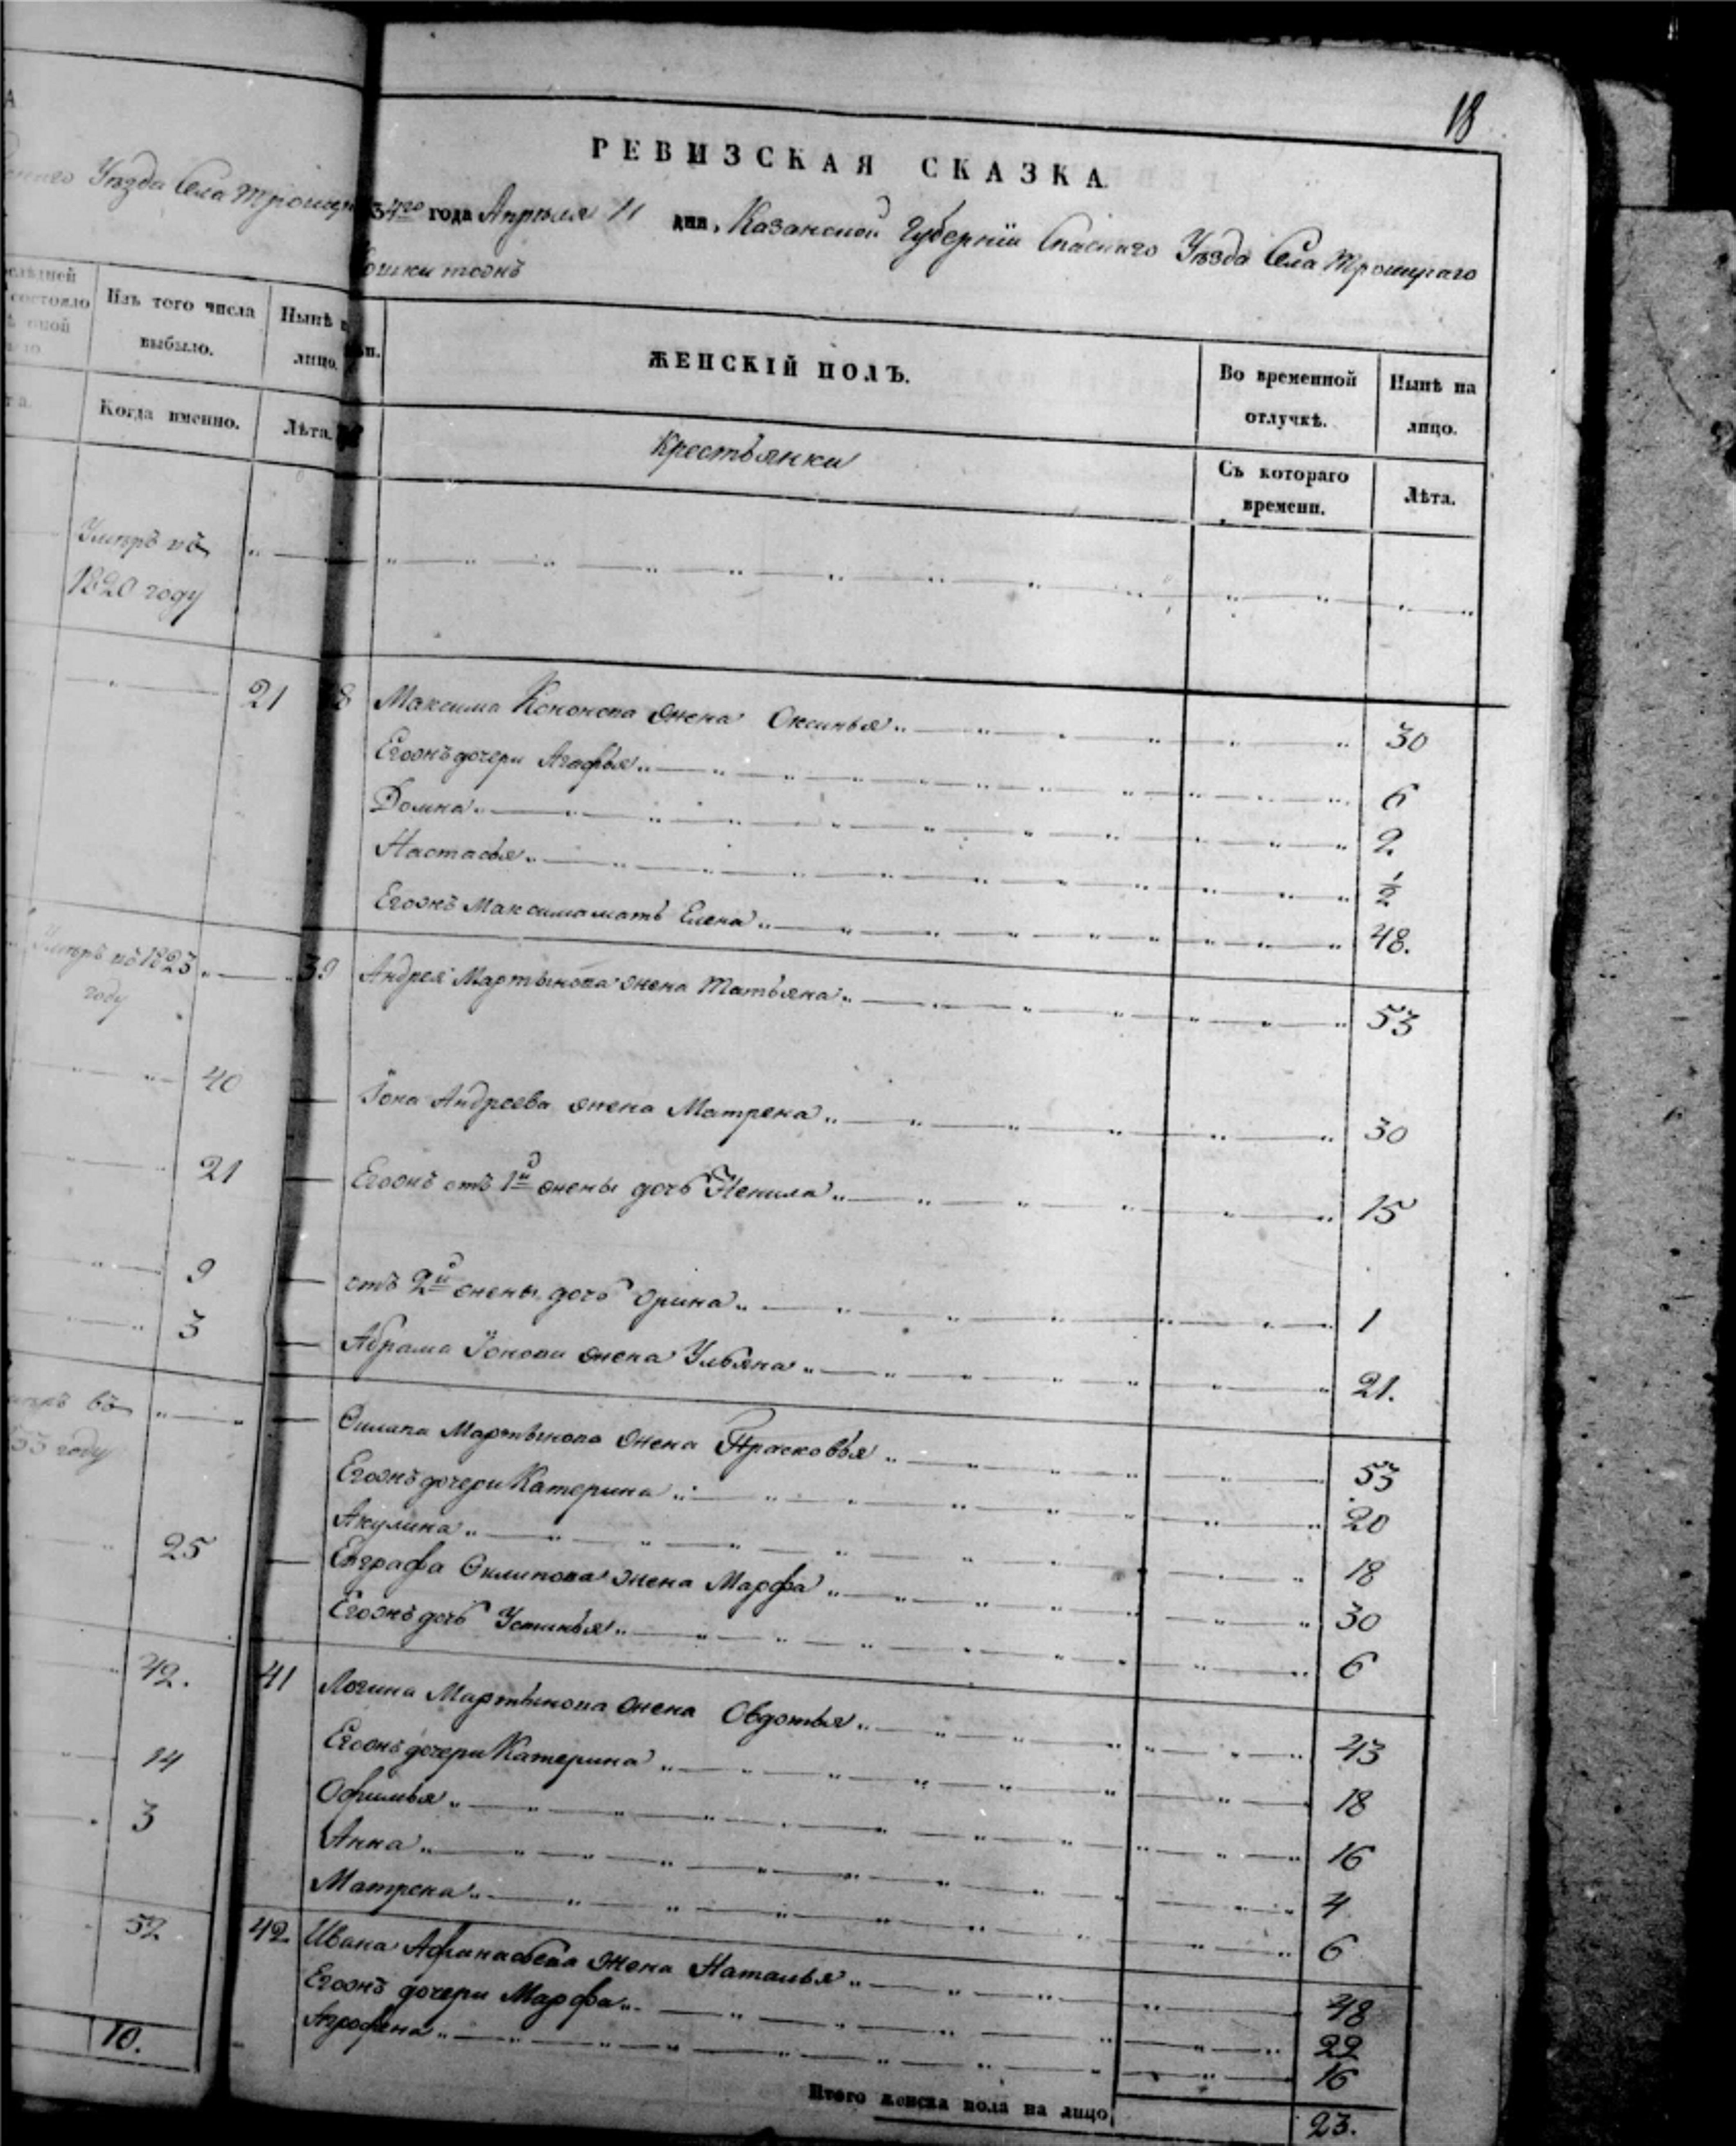 А
Уѣзда Села Троицк
Изъ того числа выбыло.
Нынѣ
лицо.
Когда именно.
Лѣта.
Умеръ въ
1820 году
21
Умеръ въ 1823
году
40
21
9
3
въ
33 году
25
42.
14
3
52
10.
18
РЕВИЗСКАЯ СКАЗКА
34го года Апрѣля 11 дня, Казанской Губерніи Спаскаго Уѣзда Села Троицкаго
ЖЕНСКІЙ ПОЛЪ.
Во временной отлучкѣ.
Нынѣ на лицо.
Крестьянки
Съ котораго времени.
Лѣта.
8 Максима Кононова жена Оксинья 30
Егожъ дочери Агафья 6
Домна 2
Настасья 1/2
Егожъ Максима мать Елена 48.
39 Андрея Мартынова жена Татьяна 53
Іона Андреева жена Матрена 30
Егожъ отъ 1й жены дочь Ненила 15
отъ 2й жены дочь Орина 1
Абрама Іонова жена Ульяна 21.
Филипа Мартынова жена Прасковья 53
Егожъ дочери Катерина 20
Акулина 18
Евграфа Филипова жена Марфа 30
Егожъ дочь Устинья 6
41 Логина Мартынова жена Овдотья 43
Егожъ дочери Катерина 18
Офимья 16
Анна 4
Матрена 6
42 Ивана Афанасьева жена Наталья 48
Егожъ дочери Марфа 22
Агрофена 16
Итого женска пола на лицо 23.